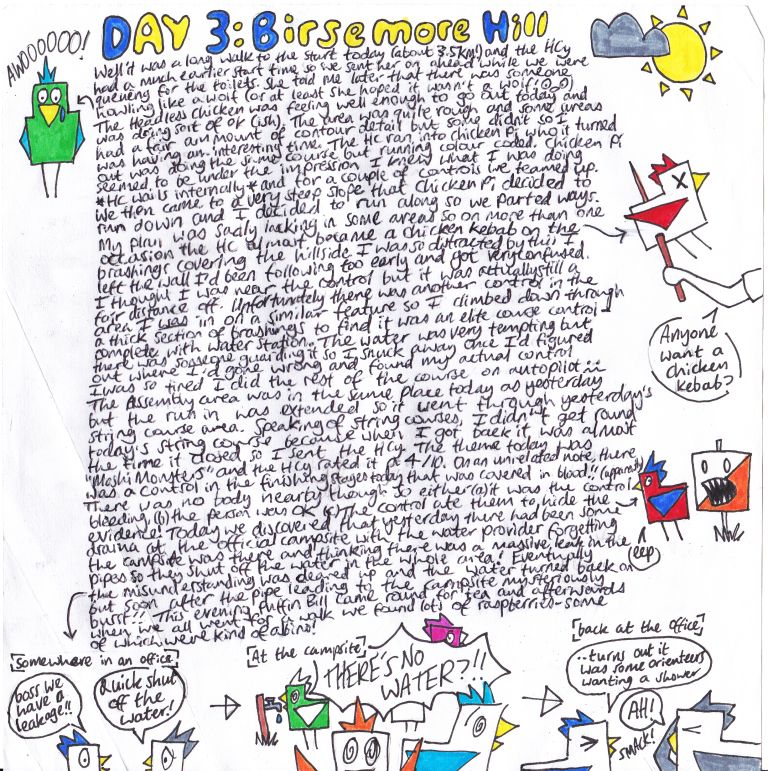 DAY 3: Birsemore Hill
AWOOOOOO!
Well it was a long walk to the start today (about 3.5km!) and the HCy
had a much earlier start time so we sent her on ahead while we were
queueing for the toilets. She told me later that there was someone
howling like a wolf (or at least she hoped it wasn't a wolf; O_O)
The Headless Chicken was feeling well enough to go out today and
was doing sort of ok (ish). The area was quite rough and some areas
had a fair ammount of contour detail but some didn't so I
was having an interesting time. The HC ran into Chicken Pi who it turned
out was doing the same course but running colour coded. Chicken Pi
seemed to be under the impression I knew what I was doing
*HC wails internally* and for a couple of controls we teamed up.
We then came to a very steep slope that Chicken Pi decided to
run down and I decided to run along so we parted ways.
My plan was sadly lacking in some areas so on more than one
occasion the HC almost became a chicken kebab on the
brashings covering the hillside. I was so distracted by this I
left the wall I'd been following too early and got very confused.
I thought I was near the control but it was actually still a
fair distance off. Unfortunately there was another control in the
area I was in on a similar feature so I climbed down through
a thick section of brashings to find it was an elite course control -
complete with water station. The water was very tempting but
there was someone guarding it so I snuck away once I'd figured
out where I'd gone wrong and found my actual control
I was so tired I did the rest of the course on autopilot
The Assembly area was in the same place today as yesterday
but the run in was extended so it went through yesterday's
string course area. Speaking of string courses, I didn't get round
today's string course because when I got back it was almost
the time it closed so I sent the HCy. The theme today was
"Moshi Monsters" and the HCy rated it a 4/10. On an unrelated note, there
was a control in the finishing stages today that was covered in blood!! (apparently)
There was no body nearby though so either (a) it was the control
bleeding (b) the person was OK (c) The control ate them to hide the
evidence! Today we discovered that yesterday there had been some
drama at the official campsite with the water provider forgetting
the campsite was there and thinking there was a massive leak in the
pipes so they shut off the water in the whole area! Eventually
the misunderstanding was cleared up and the water turned back on
but soon after the pipe leading to the campsite mysteriously
burst!! This evening Puffin Bill came round for tea and afterwards
when we all went for a walk we found lots of raspberries - some
of which were kind of albino!
Anyone
want a
chicken
kebab?
eep
[Somewhere in an office]
boss we
have a
leakage!!
Quick shut
off the
water!
[At the campsite]
THERE'S NO
WATER?!!
[back at the office]
..turns out it
was some orienteers
wanting a shower
AH!
SMACK!